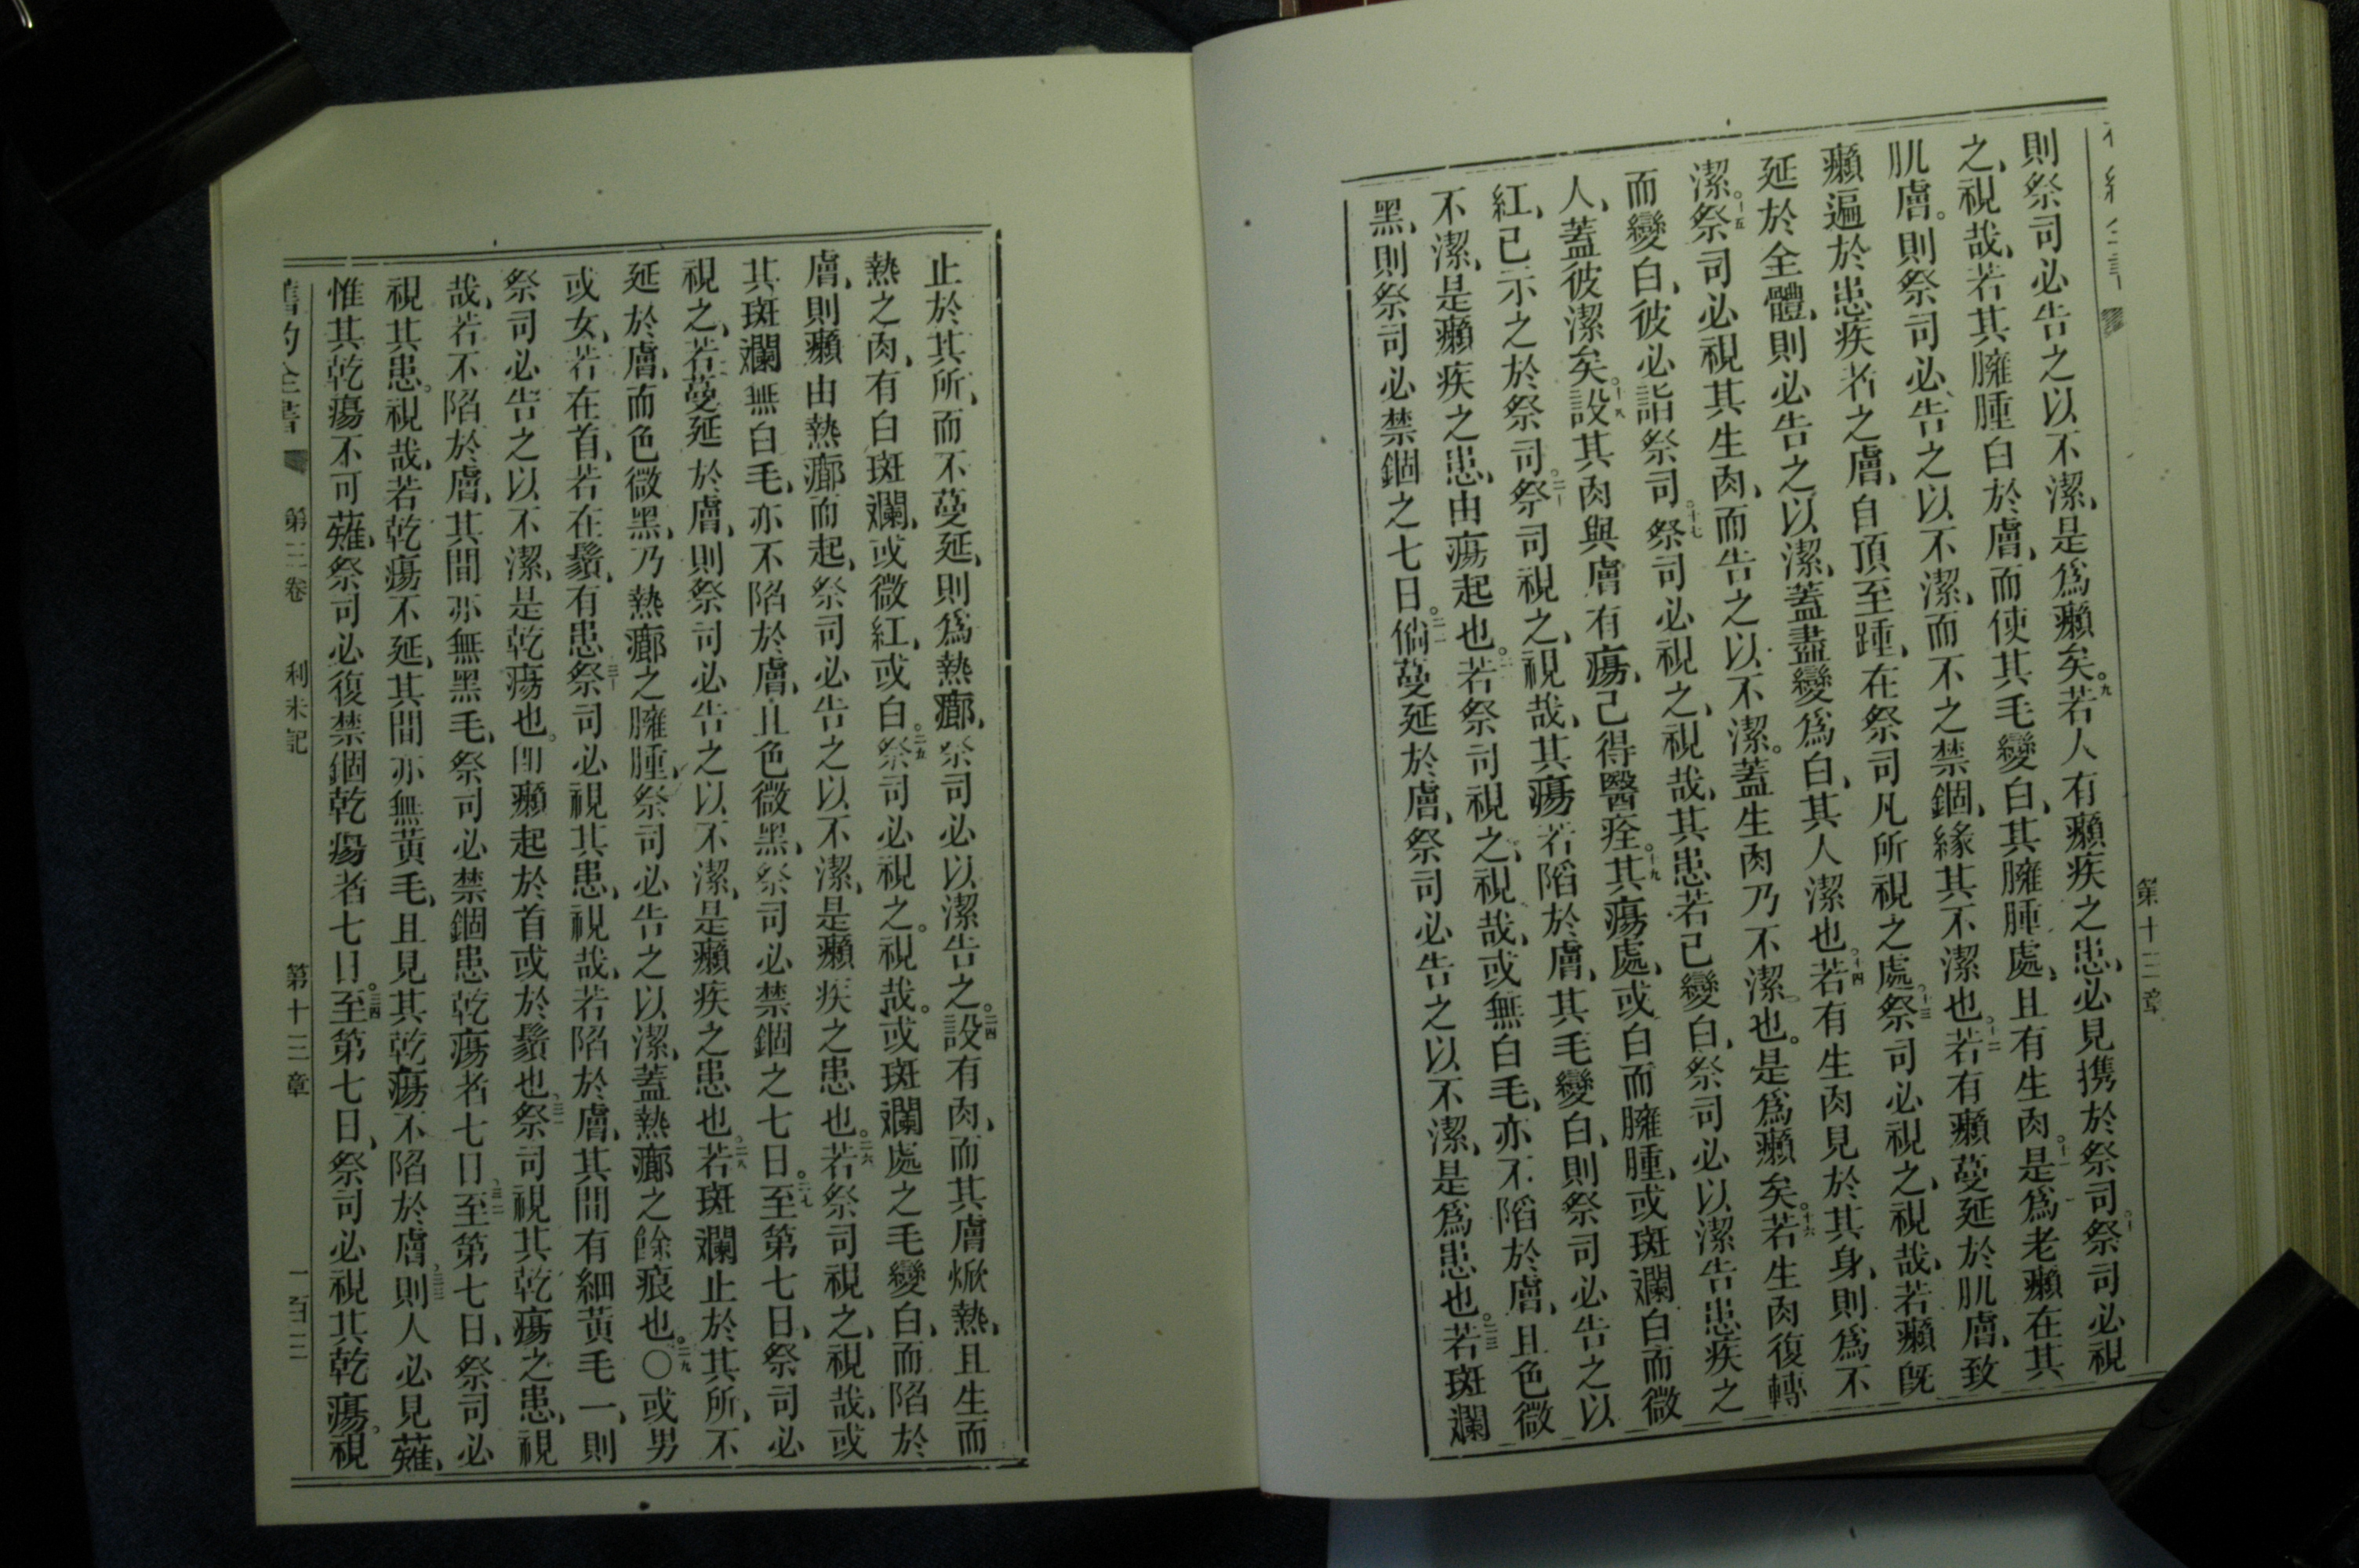 則祭司必告之以不潔、是爲癩矣。九若人有癩疾之患、必見携於祭司。十祭司必視
之、視哉、若其臃腫白於膚、而使其毛變白、其臃腫處、且有生肉。十一是爲老癩在其
肌膚。則祭司必告之以不潔、而不之禁錮、緣其不潔也。十二若有癩蔓延於肌膚、致
癩遍於患疾者之膚、自頂至踵、在祭司凡所視之處。十三祭司必視之、視哉、若癩旣
延於全體、則必告之以潔、蓋盡變爲白、其人潔也。十四若有生肉見於其身、則爲不
潔。十五祭司必視其生肉、而告之以不潔。蓋生肉乃不潔也。是爲癩矣。十六若生肉復轉
而變白、彼必詣祭司。十七祭司必視之、視哉、其患若已變白、祭司必以潔告患疾之
人、蓋彼潔矣。十八設其肉與膚有瘍、己得醫痊。十九其瘍處、或白而臃腫、或斑斕白而微
紅、已示之於祭司。二十祭司視之、視哉、其瘍若陷於膚、其毛變白、則祭司必告之以
不潔、是癩疾之患、由瘍起也。二一若祭司視之、視哉、或無白毛、亦不陷於膚、且色微
黑、則祭司必禁錮之七日。二二倘蔓延於膚、祭司必告之以不潔、是爲患也。二三若斑斕
第十三章
止於其所、而不蔓延、則爲熱㿈、祭司必以潔告之。二四設有肉、而其膚焮熱、且生而
熱之肉、有白斑斕、或微紅、或白。二五祭司必視之。視哉。或斑斕處之毛變白、而陷於
膚、則癩由熱㿈而起、祭司必告之以不潔、是癩疾之患也。二六若祭司視之、視哉、或
其斑斕無白毛、亦不陷於膚、且色微黑、祭司必禁錮之七日。二七至第七日、祭司必
視之、若蔓延於膚、則祭司必告之以不潔、是癩疾之患也。二八若斑斕止於其所、不
延於膚、而色微黑、乃熱㿈之臃腫、祭司必告之以潔、蓋熱㿈之餘痕也。二九〇或男
或女、若在首、若在鬚、有患、三十祭司必視其患、視哉、若陷於膚、其間有細黃毛一、則
祭司必告之以不潔、是乾瘍也。卽癩起於首或於鬚也。三一祭司視其乾瘍之患、視
哉、若不陷於膚、其間亦無黑毛、祭司必禁錮患乾瘍者七日。三二至第七日、祭司必
視其患。視哉、若乾瘍不延、其間亦無黃毛、且見其乾瘍不陷於膚、三三則人必見薙、
惟其乾瘍不可薙、祭司必復禁錮乾瘍者七日。三四至第七日、祭司必視其乾瘍。視
舊約全書　第三卷　利未記　第十三章　一百三